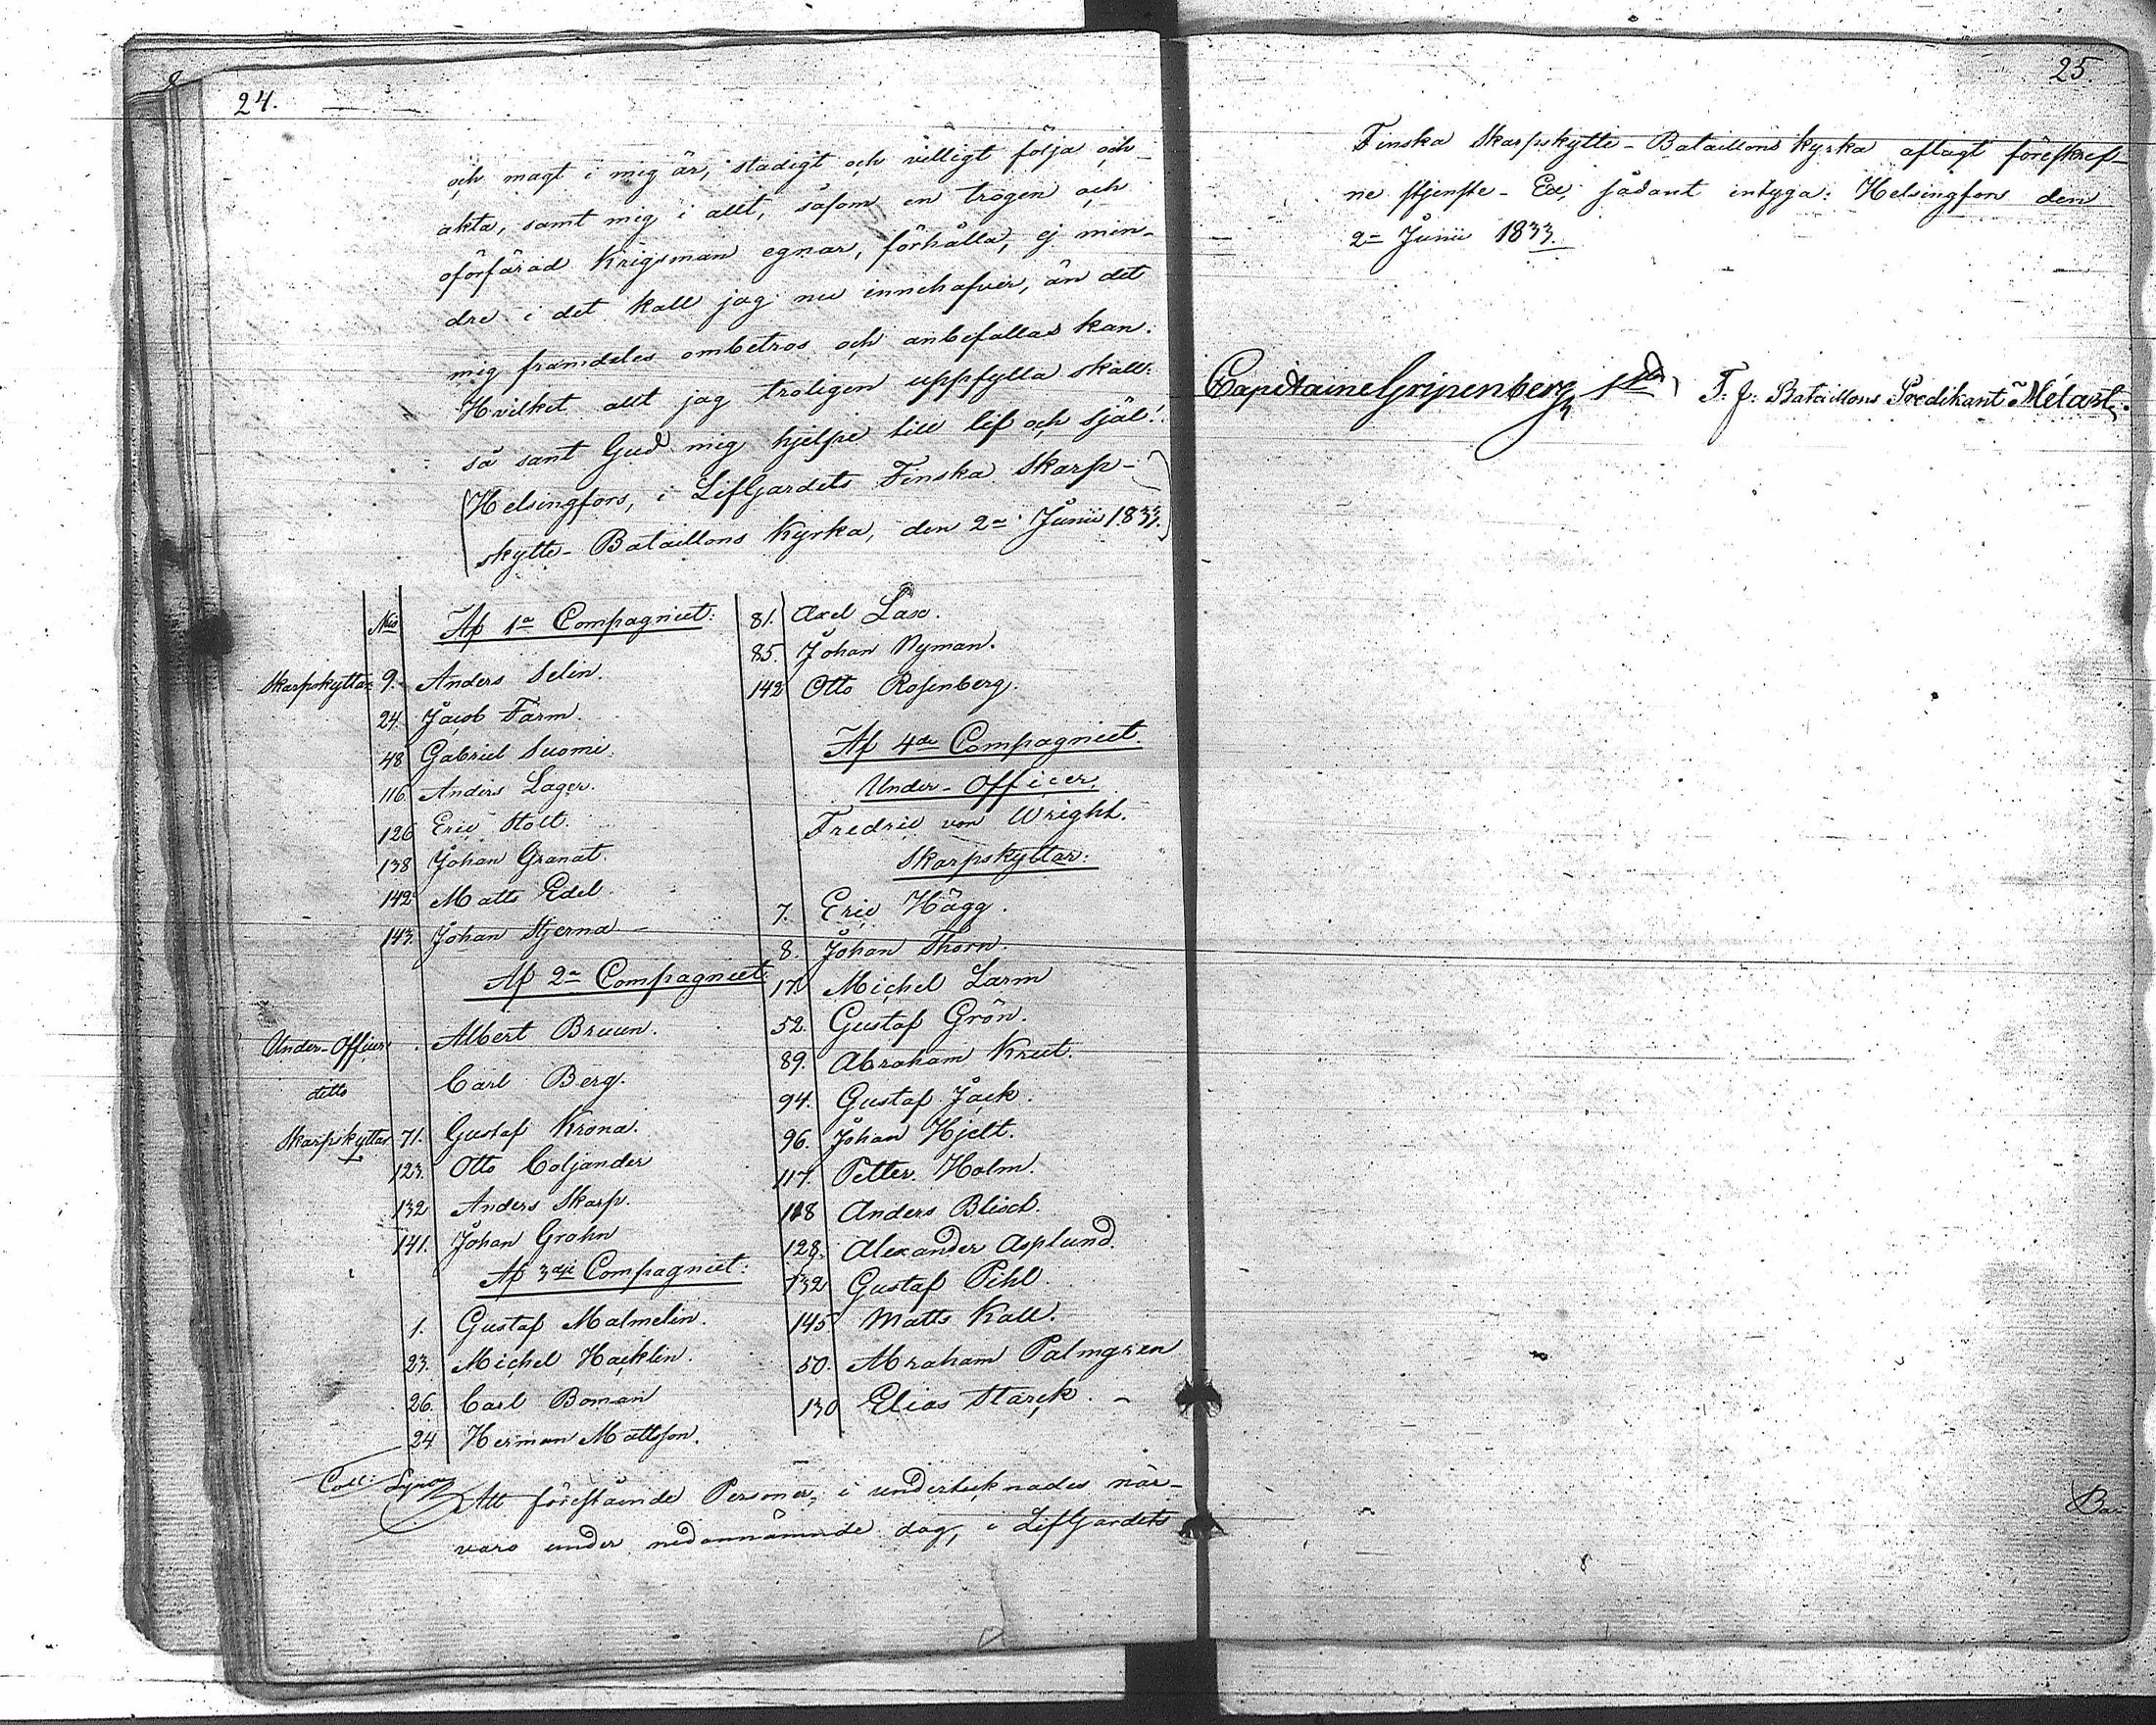 24.
och magt i mig är, stadigt och villigt följa och
akta, samt mig i allt, såsom en trogen och
oförfärad Krigsman egnar, förhålla, ej min-
dre i det kall jag nu innehafver, än det
mig framdeles ombetros och anbefallas kan.
Hvilket allt jag troligen uppfylla skall.
så sant Gud mig hjelpe till lif och själ!
Helsingfors, i LifGardets Finska Skarp-
skytte-Bataillons Kyrka, den 2a Junii 1833.
Nris Af 1a Compagniet:
Skarpskyttar 9. Anders Selin.
24. Jacob Farm.
48 Gabriel Suomi.
116. Anders Lager.
126 Eric Stolt.
138 Johan Granat.
142 Matts Edel.
143. Johan Stjerna -
Af 2a Compagniet:
Under-Officer Albert Bruun.
detto Carl Berg.
Skarpskyttar 71. Gustaf Krona.
123. Otto Coljander
132 Anders Skarp.
141. Johan Grahn
Af 3dje Compagniet:
1. Gustaf Malmelin.
23. Michel Hacklin.
26. Carl Boman
24 Herman Mattson.
81. Axel Lax.
85. Johan Nyman.
142 Otto Rosenberg.
Af 4de Compagniet.
Under-Officer.
Fredric von Wright.
Skarpskyttar:
7. Eric Hägg.
8. Johan Thorn.
17. Michel Larm
52. Gustaf Grön.
89. Abraham Krut.
94. Gustaf Jack.
96. Johan Hjelt.
117. Petter Holm.
118 Anders Blixt.
128. Alexander Asplund.
132 Gustaf Pihl.
145 Matts Kall.
50. Abraham Palmgren
130 Elias Starck. -
Att föreståénde Personer, i undertecknades när-
varo under nedannämnde dag, i LifGardets
25.
Finska Skarpskytte-Bataillons Kyrka aflagt föreskref-
ne tjenste-Ed, sådant intyga: Helsingfors den
2a Junii 1833.
Capitaine Gripenberg 1sta
T. f. Bataillons Predikant Mélart.
Ba-